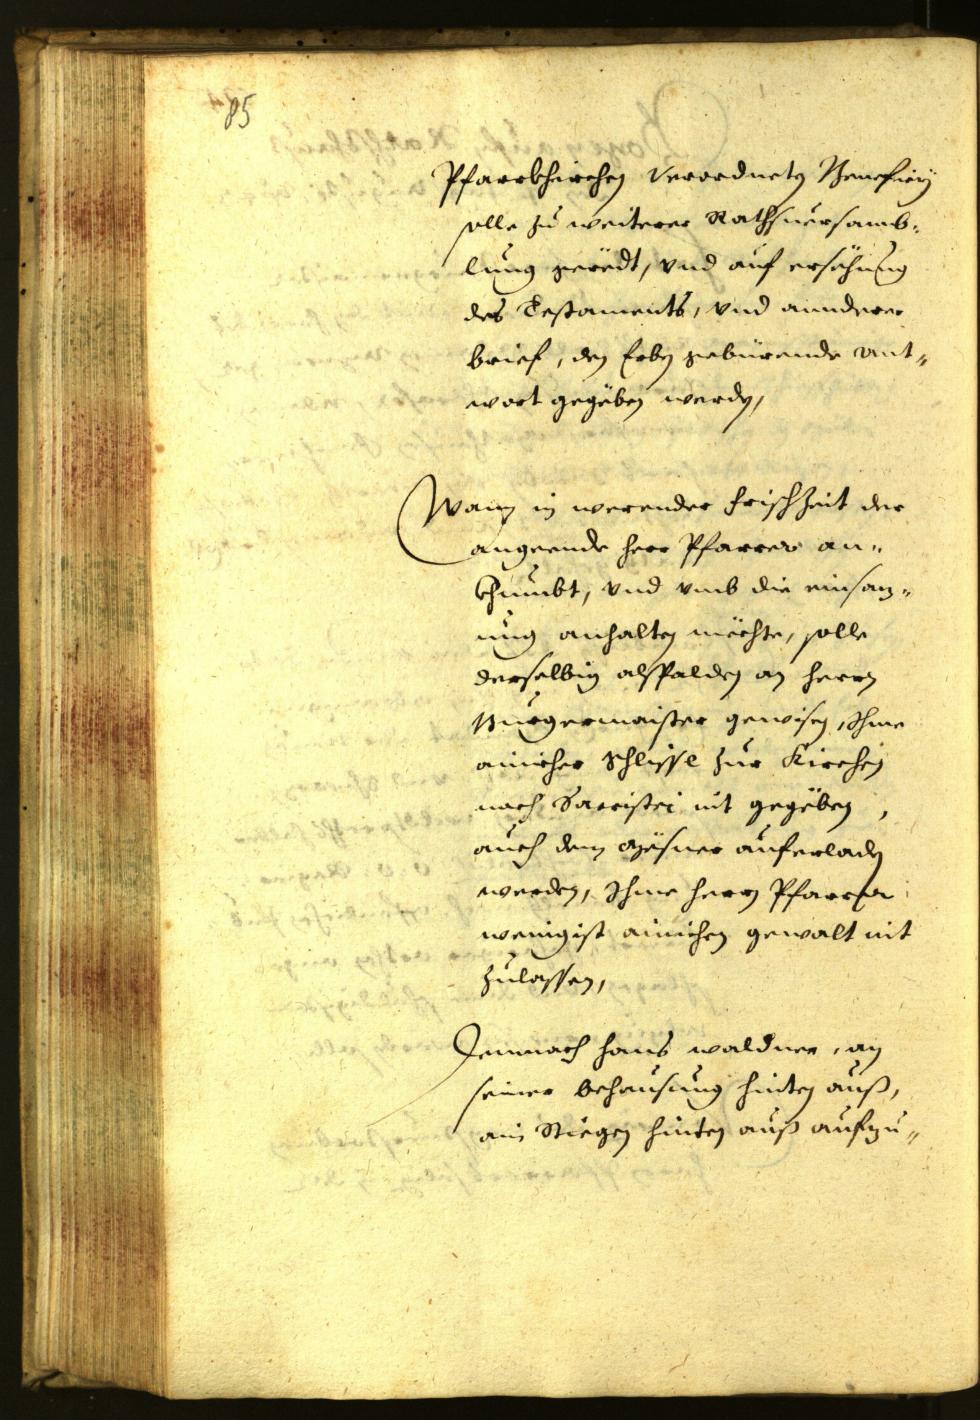 85
Pfarrkhirchen verordneten Beneficij
solle zu weiterer Rathsuersamb-
lung geredt, vnd auf ersehung
des Testaments, vnd annderer
brief, den Erben gebürende ant-
wort gegeben werden,
Wann in werender frist Zeit der
angeende herr Pfarrer an-
khumbt, vnd vmb die einsaz-
ung anhalten möchte, solle
derselbig alspalden an herrn
Burgermaister gewisen, Ihme
ainicher Schlissl zur Kirchen
noch Sacristei nit gegeben,
auch dem Mesner auferladen
werden, Ihme herrn Pfarrer
wenigist ainichen gewalt nit
zulassen,
Demnach Hans Waldner, an
seiner behausung hinden auß,
ain Stiegen hinden auß aufzu-